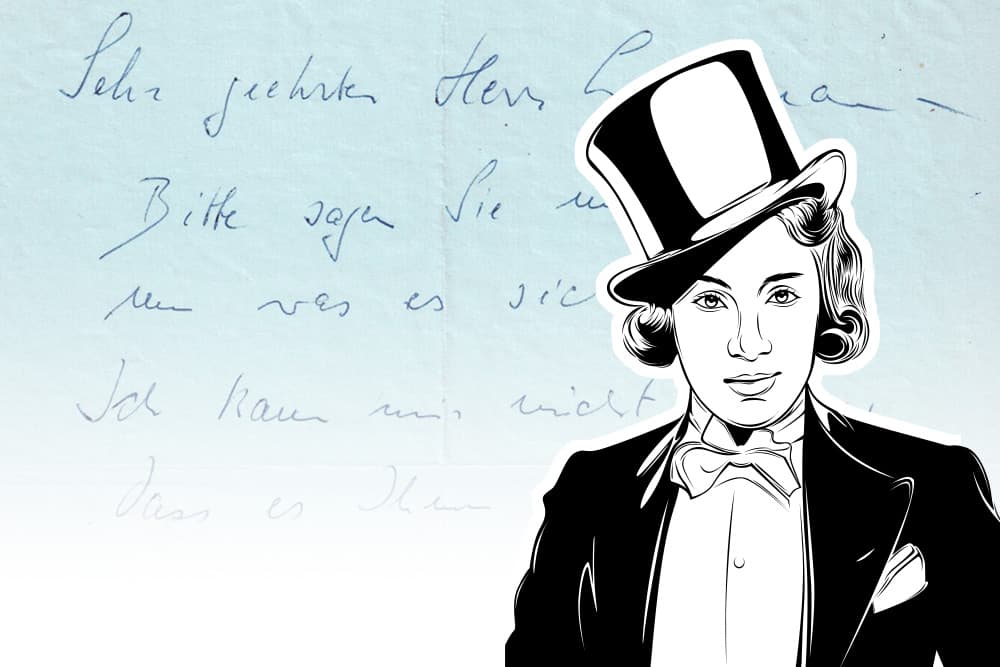 Sehr geehrter Herr
Bitte sagen Sie
um was es sich
Ich kann mir nicht
dass es Ihnen